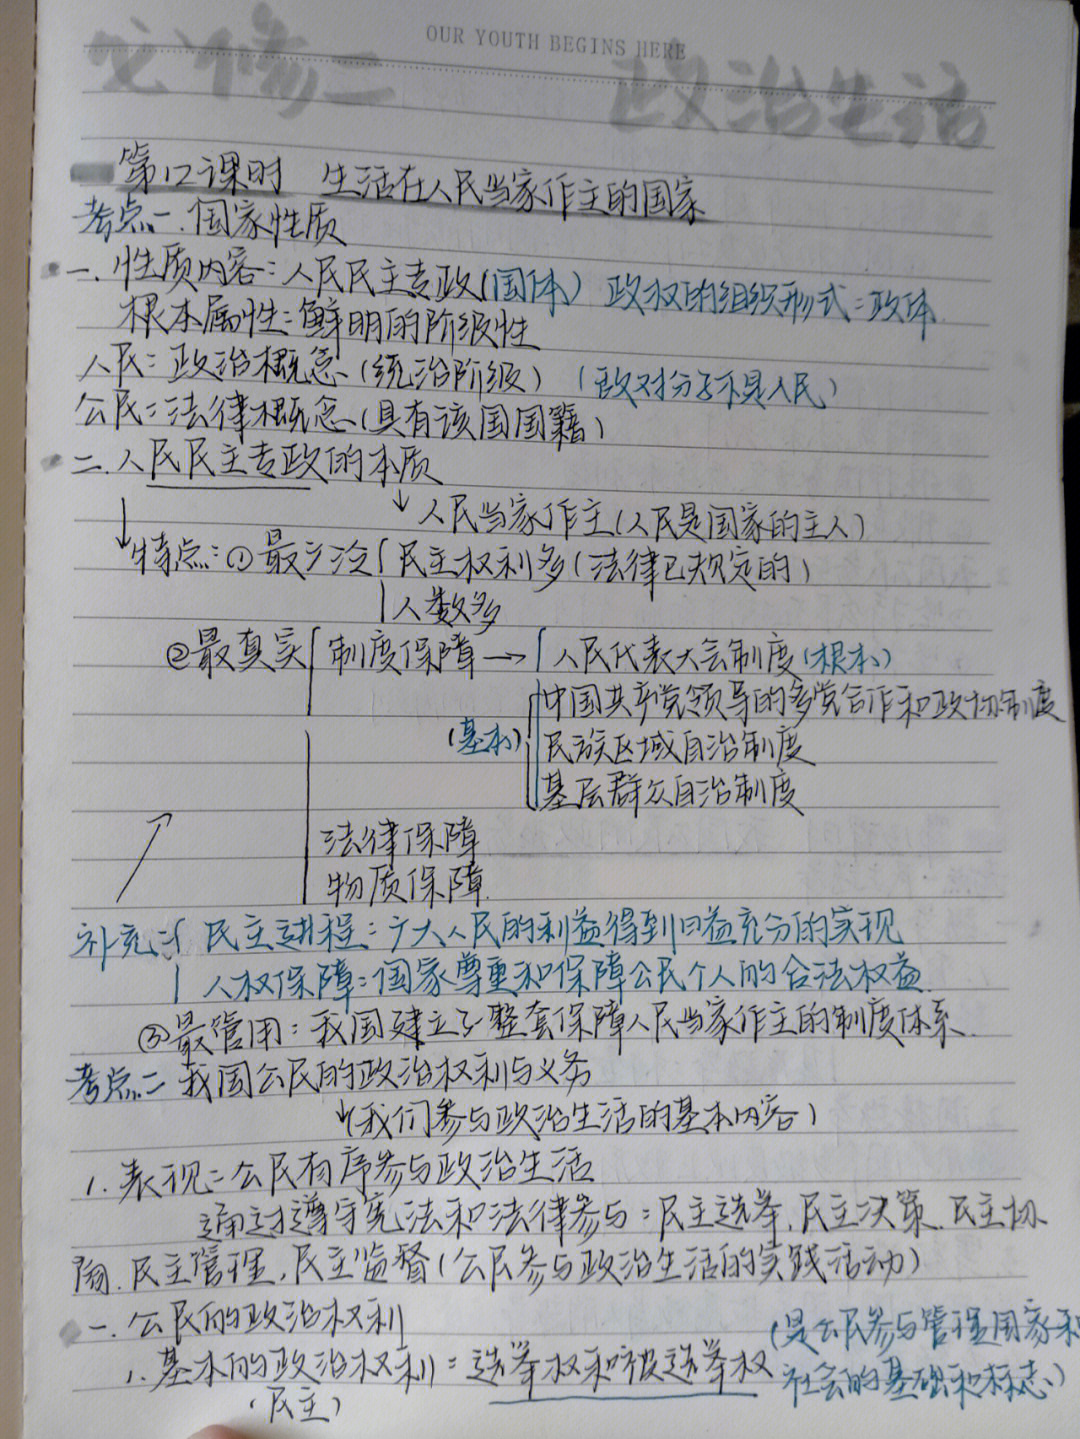 OUR YOUTH BEGINS HERE
必修二 政治生活
第12课时 生活在人民当家作主的国家
考点一.国家性质
一.性质内容:人民民主专政(国体) 政权的组织形式:政体
根本属性:鲜明的阶级性
人民:政治概念(统治阶级) (敌对分子不是人民)
公民:法律概念(具有该国国籍)
二.人民民主专政的本质
↓人民当家作主(人民是国家的主人)
↓特点:①最广泛{民主权利多(法律已规定的)
人数多
②最真实 制度保障→ 人民代表大会制度(根本)
中国共产党领导的多党合作和政协制度
(基本) 民族区域自治制度
基层群众自治制度
法律保障
物质保障
补充:{民主进程:广大人民的利益得到日益充分的实现
人权保障:国家尊重和保障公民个人的合法权益.
③最管用:我国建立了整套保障人民当家作主的制度体系.
考点二 我国公民的政治权利与义务
↓(我们参与政治生活的基本内容)
1.表现:公民有序参与政治生活
通过遵守宪法和法律参与:民主选举.民主决策.民主协
商.民主管理,民主监督(公民参与政治生活的实践活动)
一.公民的政治权利
(是公民参与管理国家和
1.基本的政治权利:选举权和被选举权 社会的基础和标志)
(民主)